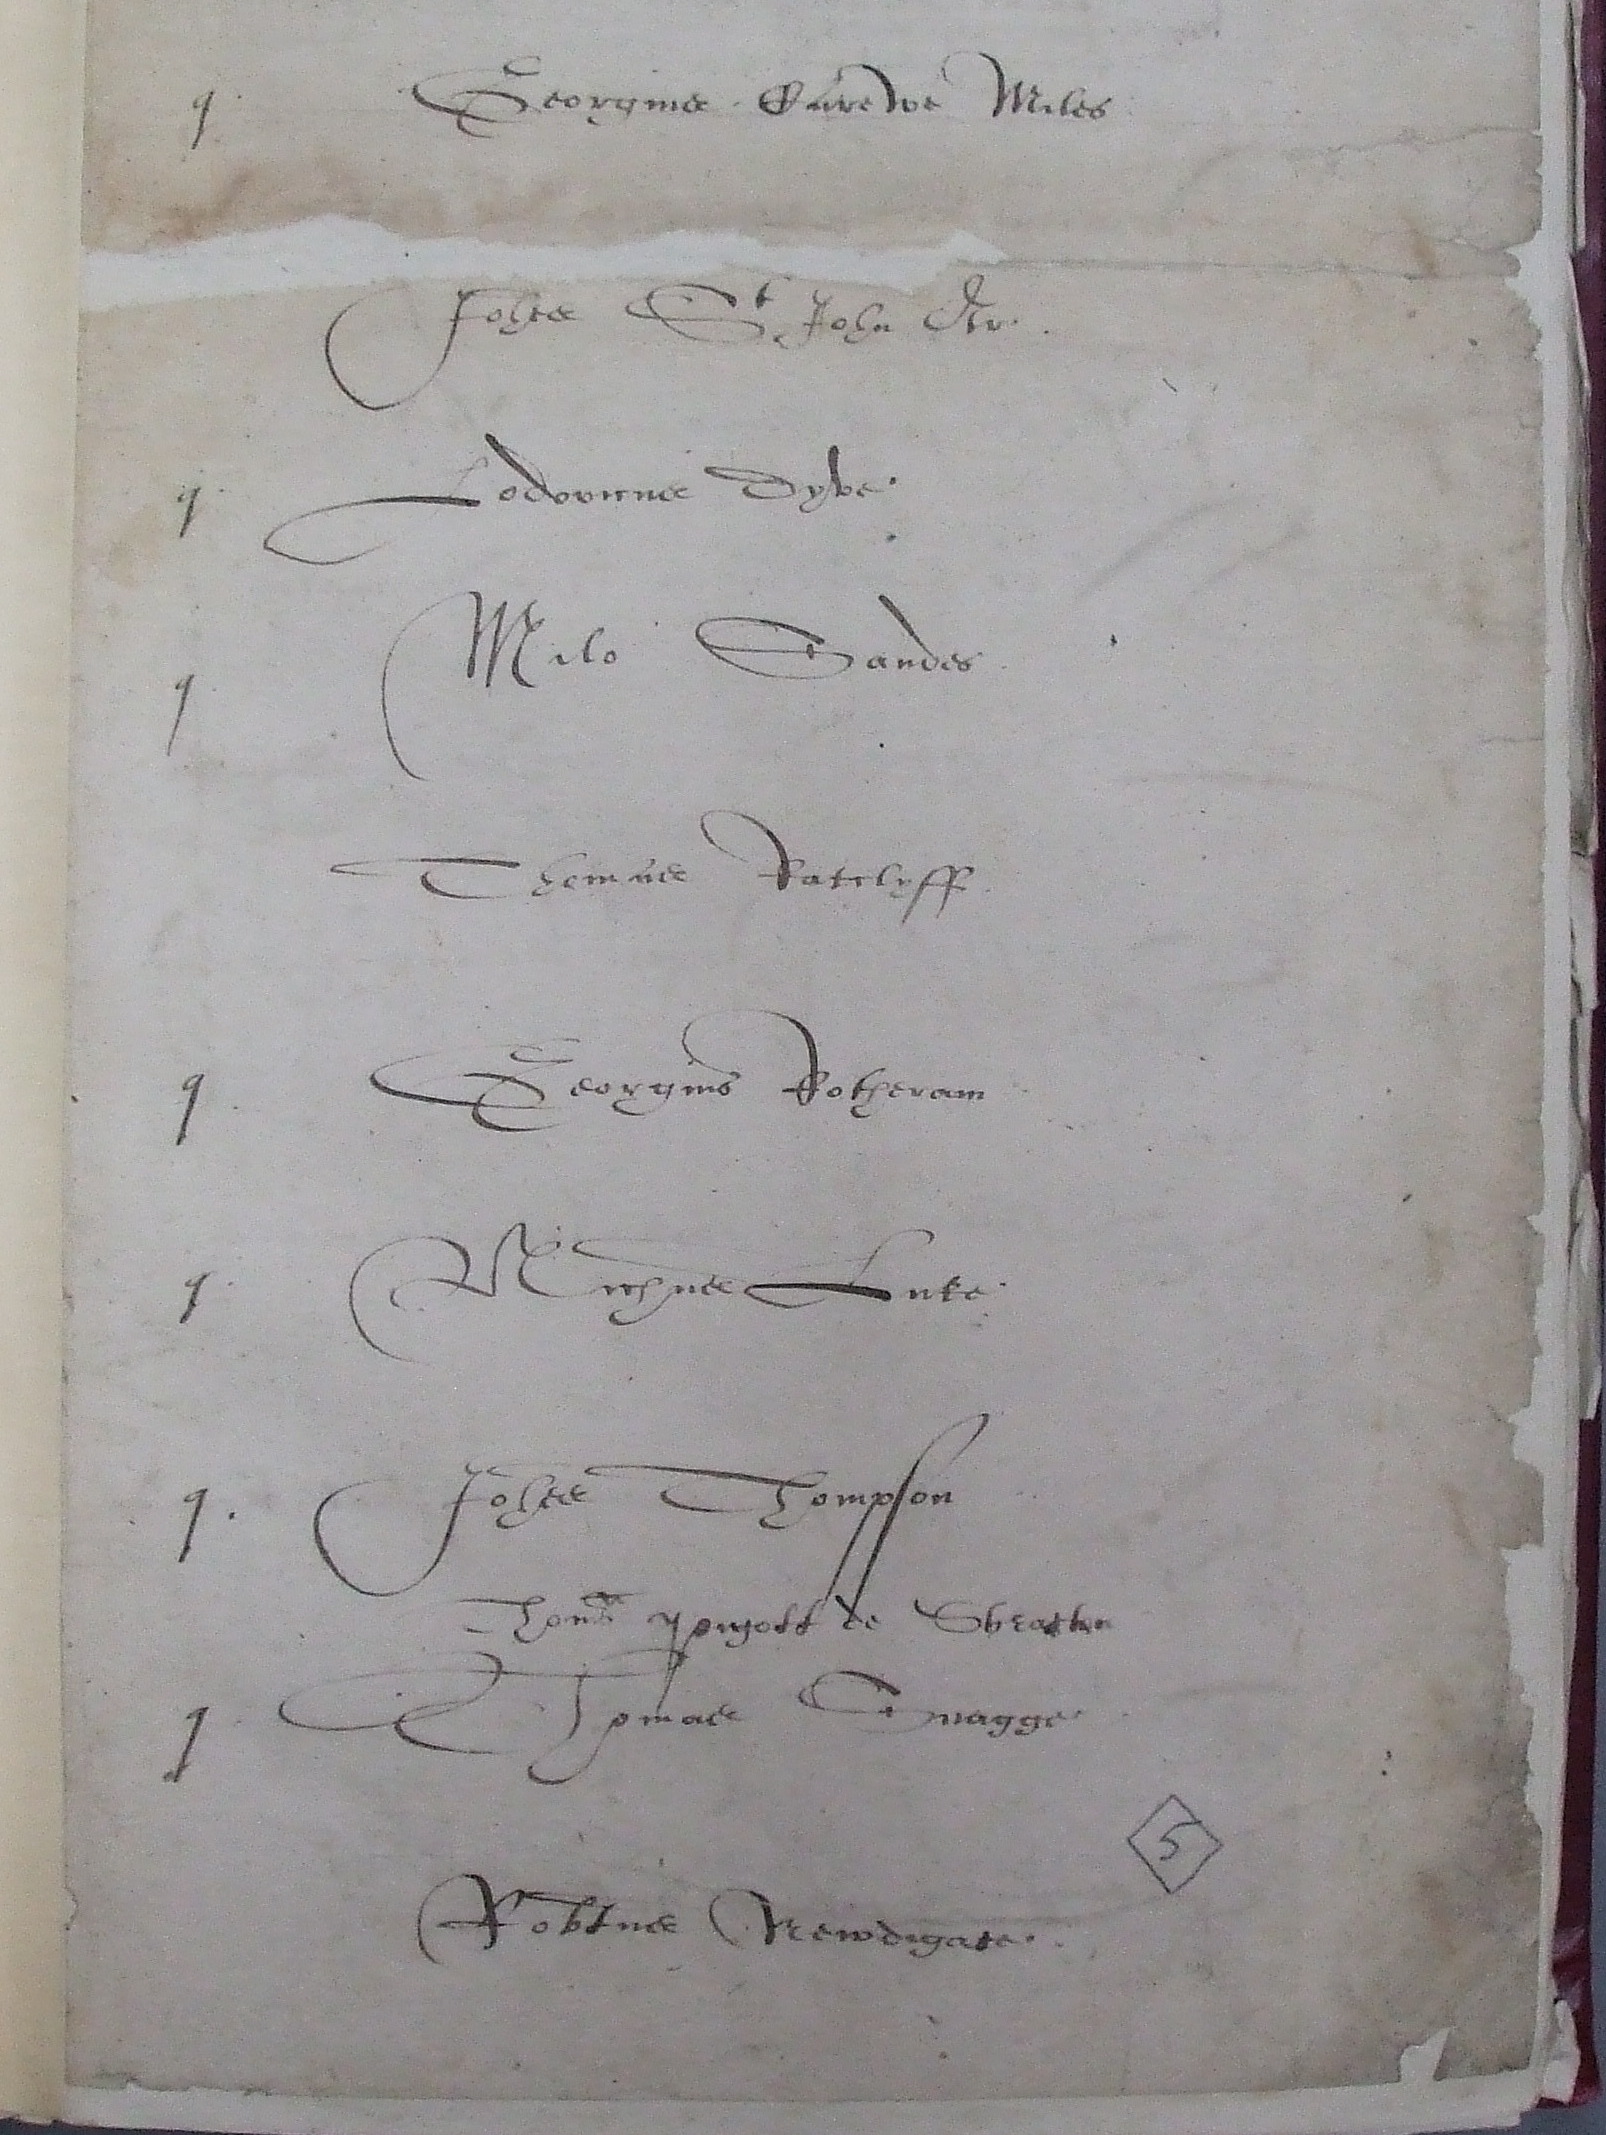 q Georgius Carewe Miles
Johes St John Ar
q Lodovicus Dyve
q Milo Sandes
Thomas Ratclyff
q Georgius Rotheram
q Nichus Luke
q Johes Thompson
Thomas pigott de Stratton
q Thomas Snagge
5
Robtus Newdigate